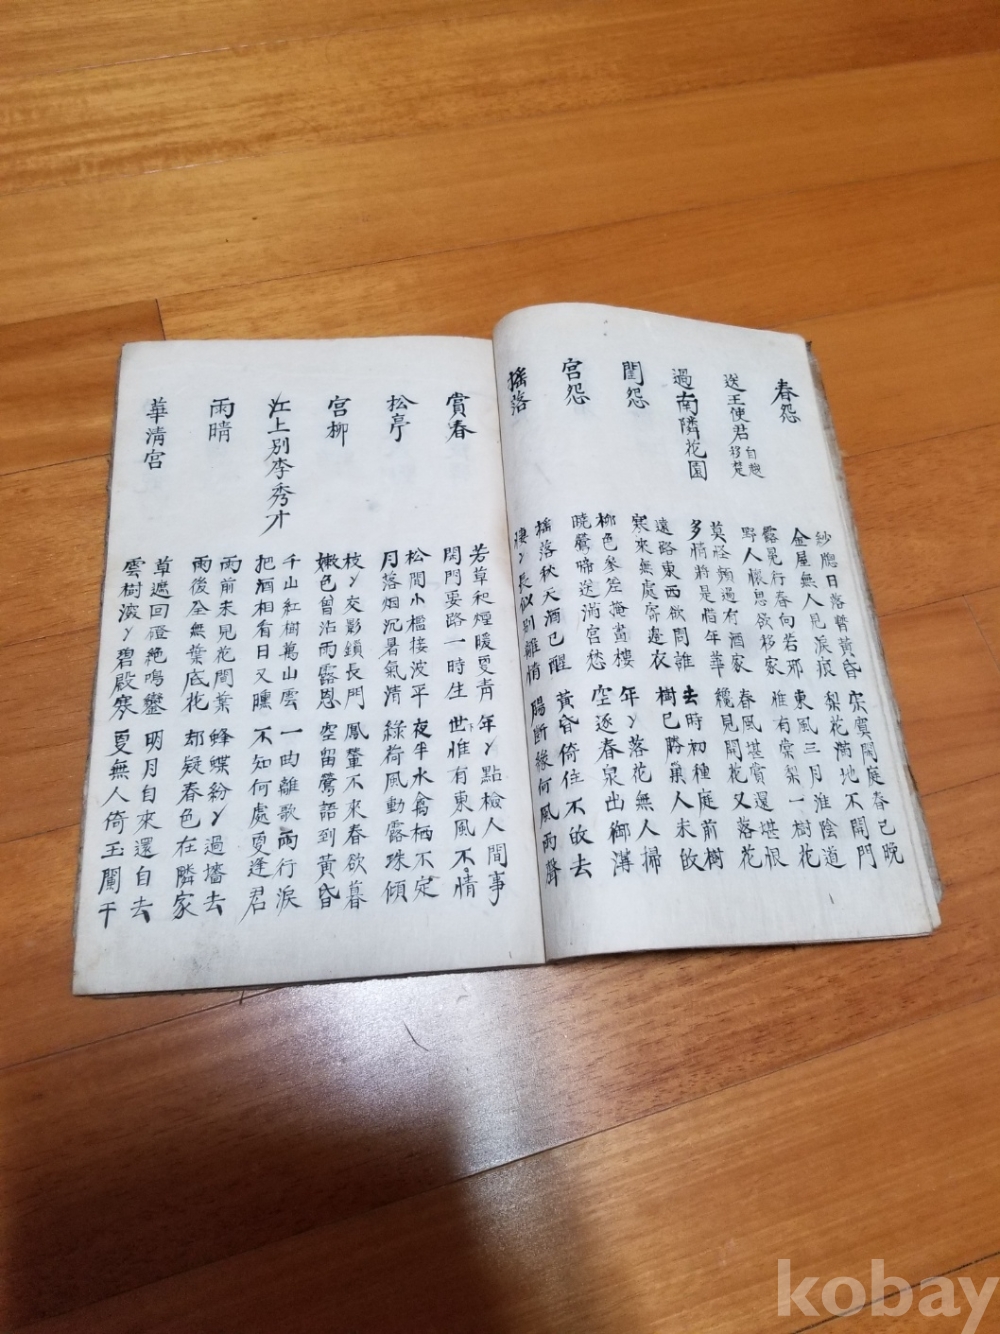 春怨
紗牕日落暫黃昏
金屋無人見淚痕
寂寞閑庭春已晩
梨花滿地不開門
送王使君自越移楚
露冕行春向若耶
野人恨思欲移家
東風三月淮陰道
惟有棠梨一樹花
過南隣花園
莫怪頻過有酒家
多情將是惜年華
春風堪賞還堪恨
纔見開花又落花
閨怨
遠路東西欲問誰
寒來無處寄邊衣
去時初種庭前樹
樹已勝巢人未敀
宮怨
柳色參差掩畫樓
曉鶯啼送滿宮愁
年々落花無人掃
空逐春泉出御溝
搖落
搖落秋天酒已醒
悽々長似別離情
黃昏倚住不敀去
腸斷緣何風雨聲
賞春
芳草和煙暖更青
閑門要路一時生
年々點檢人間事
世惟有東風不情
松亭
松間小檻接波平
月落烟沉暑氣清
夜半水禽栖不定
綠荷風動露珠傾
宮柳
枝々交影鎖長門
嫩色曾沾雨露恩
鳳輦不來春欲暮
空留鶯語到黃昏
江上別李秀才
千山紅樹萬山雲
把酒相看日又曛
一曲離歌兩行淚
不知何處更逢君
雨晴
雨前未見花間葉
雨後全無葉底花
蜂蝶紛々過墻去
却疑春色在隣家
華淸宮
草遮回磴絶鳴鑾
雲樹深々碧殿寒
明月自來還自去
更無人倚玉闌干
kobay